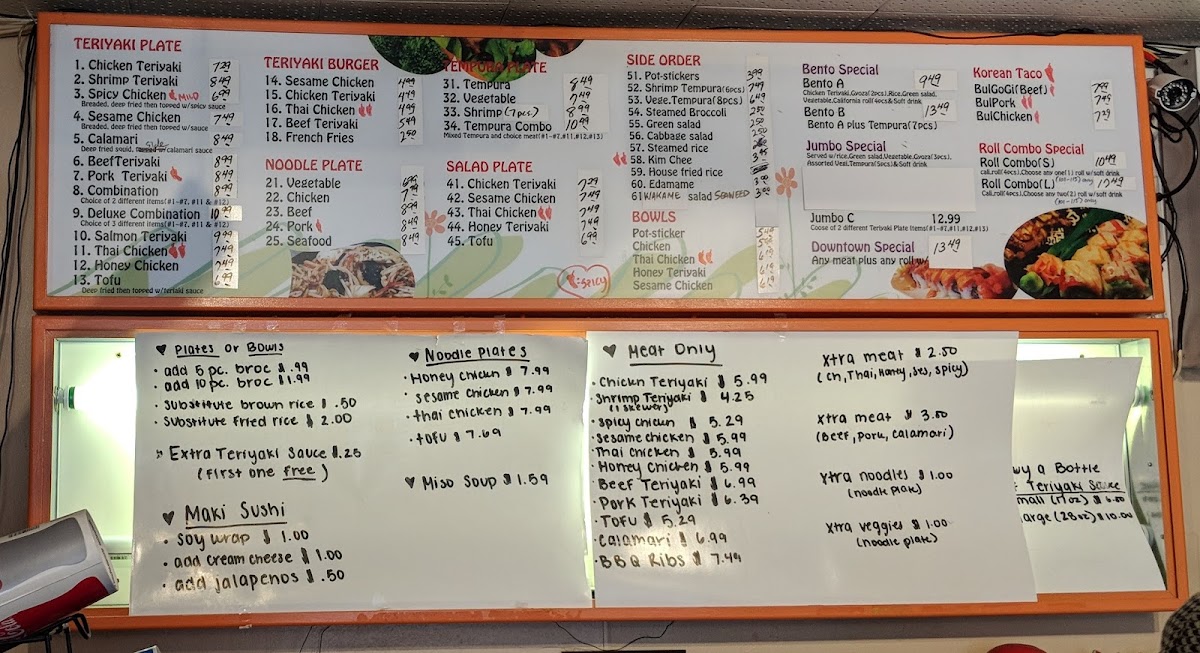 TERIYAKI PLATE
1. Chicken Teriyaki 7.29
2. Shrimp Teriyaki 8.49
3. Spicy Chicken MILD 6.99
Breaded, deep fried then topped w/spicy sauce
4. Sesame Chicken 7.49
Breaded, deep fried then topped w/sauce
5. Calamari 8.49
Deep fried squid, side w/calamari sauce
6. BeefTeriyaki 8.99
7. Pork Teriyaki 8.49
8. Combination 8.99
Choice of 2 different items(#1~#7, #11 & #12)
9. Deluxe Combination 10.99
Choice of 3 different items(#1~#7, #11 & #12)
10. Salmon Teriyaki 9.99
11. Thai Chicken 7.49
12. Honey Chicken 7.49
13. Tofu 6.99
Deep fried then topped w/teriaki sauce
TERIYAKI BURGER
14. Sesame Chicken 4.99
15. Chicken Teriyaki 4.49
16. Thai Chicken 4.99
17. Beef Teriyaki 5.49
18. French Fries 2.50
NOODLE PLATE
21. Vegetable 6.99
22. Chicken 7.99
23. Beef 8.99
24. Pork 8.49
25. Seafood 8.49
TEMPURA PLATE
31. Tempura 8.49
32. Vegetable 7.49
33. Shrimp (7pcs) 8.99
34. Tempura Combo 10.99
Mixed Tempura and choice meat(#1~#7,#11,#12,#13)
SALAD PLATE
41. Chicken Teriyaki 7.29
42. Sesame Chicken 7.49
43. Thai Chicken 7.49
44. Honey Teriyaki 7.49
45. Tofu 6.99
:SPICY
SIDE ORDER
51. Pot-stickers 3.99
52. Shrimp Tempura(6pcs) 7.49
53. Vege.Tempura(8pcs) 6.49
54. Steamed Broccoli 2.50
55. Green salad 2.50
56. Cabbage salad 2.50
57. Steamed rice
58. Kim Chee
59. House fried rice
60. Edamame 3.00
61 WAKAME salad SEAWEED 3.00
BOWLS
Pot-sticker
Chicken
Thai Chicken
Honey Teriyaki
Sesame Chicken
Bento Special
Bento A 9.49
Chicken Teriaki,Gyoza(2pcs),Rice,Green salad,
Vegetable,California roll(4pcs)&Soft drink
Bento B 13.49
Bento A plus Tempura(7pcs)
Jumbo Special
Served w/rice,Green salad,Vegetable,Gyoza(3pcs),
Assorted Veai,Tempura(5pcs)& Soft drink
Jumbo C 12.99
Coose of 2 different Teriyaki Plate items(#1~#7,#11,#12,#13)
Downtown Special 13.49
Any meat plus any roll w/
Korean Taco
BulGoGi(Beef) 7.99
BulPork 7.49
BulChicken 7.29
Roll Combo Special
Roll Combo(S) 10.49
cali,roll(4pcs),Choose any one(1) roll w/soft drink
Roll Combo(L) (100-115) only
cali,roll(4pcs),Choose any two(2) roll w/soft drink
(100-115) only
♥ Plates or Bowls
• add 5 pc. broc $ .99
• add 10 pc. broc $1.99
• substitute brown rice $ .50
• substitute fried rice $ 2.00
Extra Teriyaki Sauce $.25
(first one free)
♥ Maki Sushi
• soy wrap $ 1.00
• add cream cheese $ 1.00
• add jalapenos $ .50
♥ Noodle Plates
• Honey chicken $ 7.99
• sesame chicken $ 7.99
• thai chicken $ 7.99
• tofu $ 7.69
♥ Miso Soup $ 1.59
♥ Meat Only
• Chicken Teriyaki $ 5.99
• Shrimp Teriyaki $ 4.25
(1 skewer)
• spicy chicken $ 5.29
• sesame chicken $ 5.99
• Thai chicken $ 5.99
• Honey Chicken $ 5.99
• Beef Teriyaki $ 6.99
• Pork Teriyaki $ 6.39
• Tofu $ 5.29
• calamari $ 6.99
• BBQ Ribs $ 7.49
xtra meat $ 2.50
(ch, Thai, Honey, Ses, spicy)
xtra meat $ 3.50
(Beef, pork, calamari)
xtra noodles $ 1.00
(noodle plate)
xtra veggies $ 1.00
(noodle plate)
uy a Bottle
Teriyaki Sauce
mall (17oz) $ 6.50
arge (28oz) $ 10.00